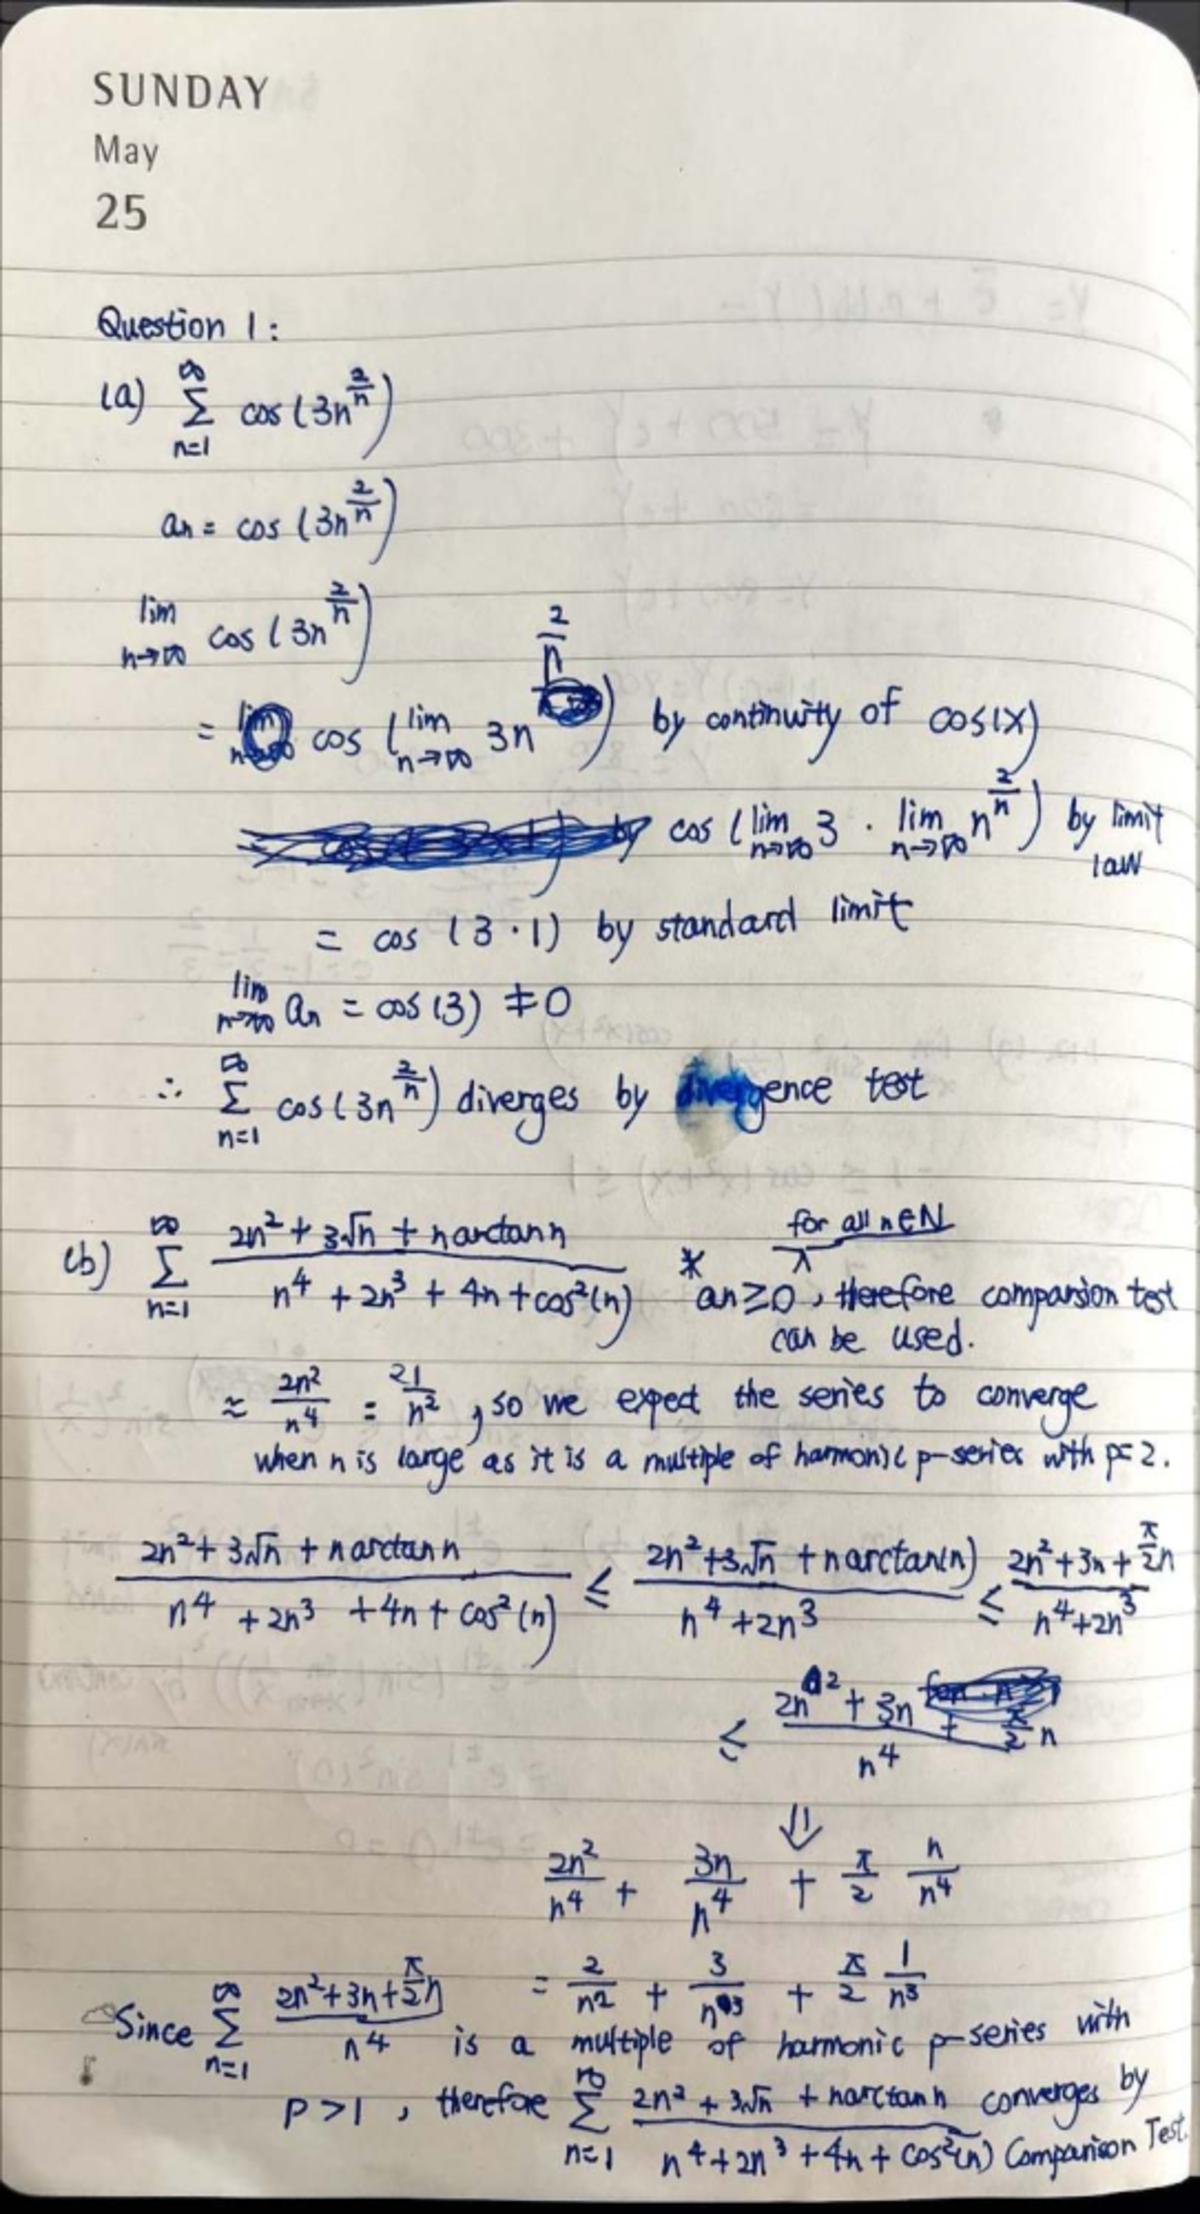 SUNDAY
May
25
Question 1:
(a) ∑_{n=1}^{∞} cos(3n^{2/n})
an = cos(3n^{2/n})
lim_{n→∞} cos(3n^{2/n})
= cos(lim_{n→∞} 3n^{2/n}) by continuity of cos(x)
cos(lim_{n→∞} 3 · lim_{n→∞} n^{2/n}) by limit law
= cos(3·1) by standard limit
lim_{n→∞} an = cos(3) ≠ 0
∴ ∑_{n=1}^{∞} cos(3n^{2/n}) diverges by divergence test
(b) ∑_{n=1}^{∞} (2n² + 3√n + n arctan n)/(n⁴ + 2n³ + 4n + cos²(n)) * an ≥ 0 for all n∈N, therefore comparsion test
can be used.
≈ 2n²/n⁴ = 2 1/n², so we expect the series to converge
when n is large as it is a multiple of harmonic p-series with p=2.
(2n² + 3√n + n arctan n)/(n⁴ + 2n³ + 4n + cos²(n)) ≤ (2n² + 3√n + n arctan(n))/(n⁴ + 2n³) ≤ (2n² + 3n + π/2 n)/(n⁴ + 2n³)
≤ (2n² + 3n + π/2 n)/n⁴
⇓
2n²/n⁴ + 3n/n⁴ + π/2 n/n⁴
= 2/n² + 3/n³ + π/2 1/n³
Since ∑_{n=1}^{∞} (2n² + 3n + π/2 n)/n⁴ is a multiple of harmonic p-series with
p>1, therefore ∑_{n=1}^{∞} (2n² + 3√n + n arctan n)/(n⁴ + 2n³ + 4n + cos²(n)) converges by
Comparison Test.